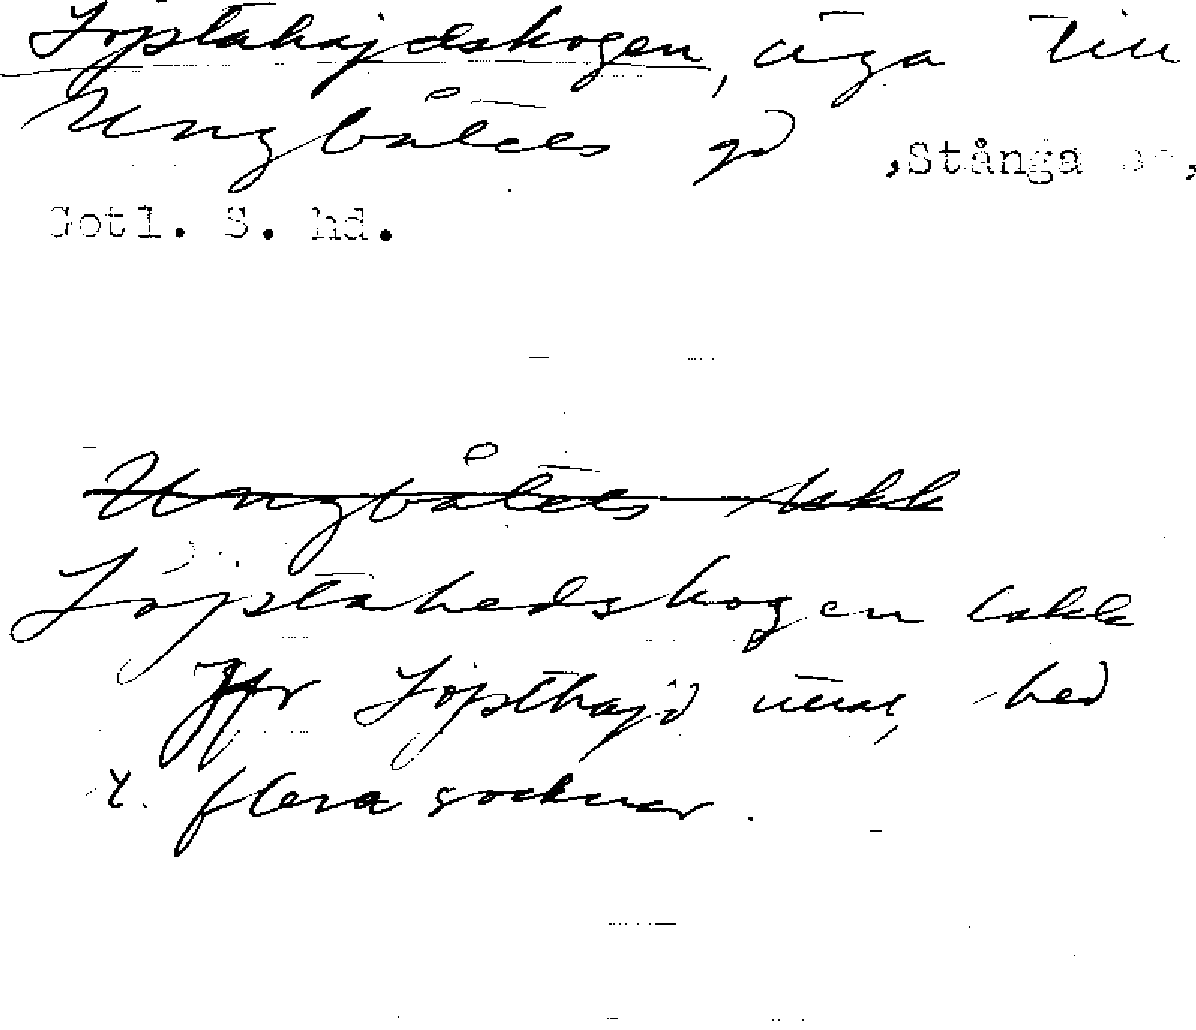 Lojstahajdskogen, äga till
Ungbåtels gd ,Stånga sn,
Gotl. S. hd.
Ungbåtels lskk
Lojstahedskogen lskk
Jfr Lojsthajd hed
i flera socknar.